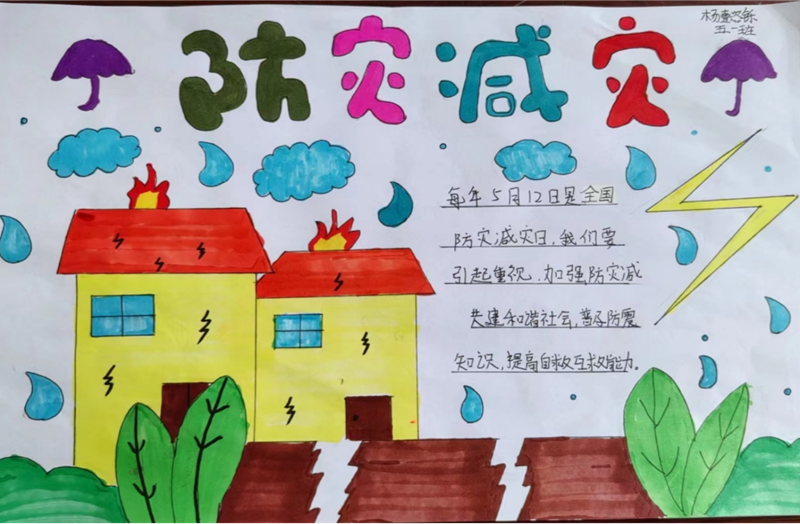 防灾减灾
五一班
每年5月12日是全国
防灾减灾日,我们要
引起重视,加强防灾减
共建和谐社会,普及防震
知识,提高自救互救能力。